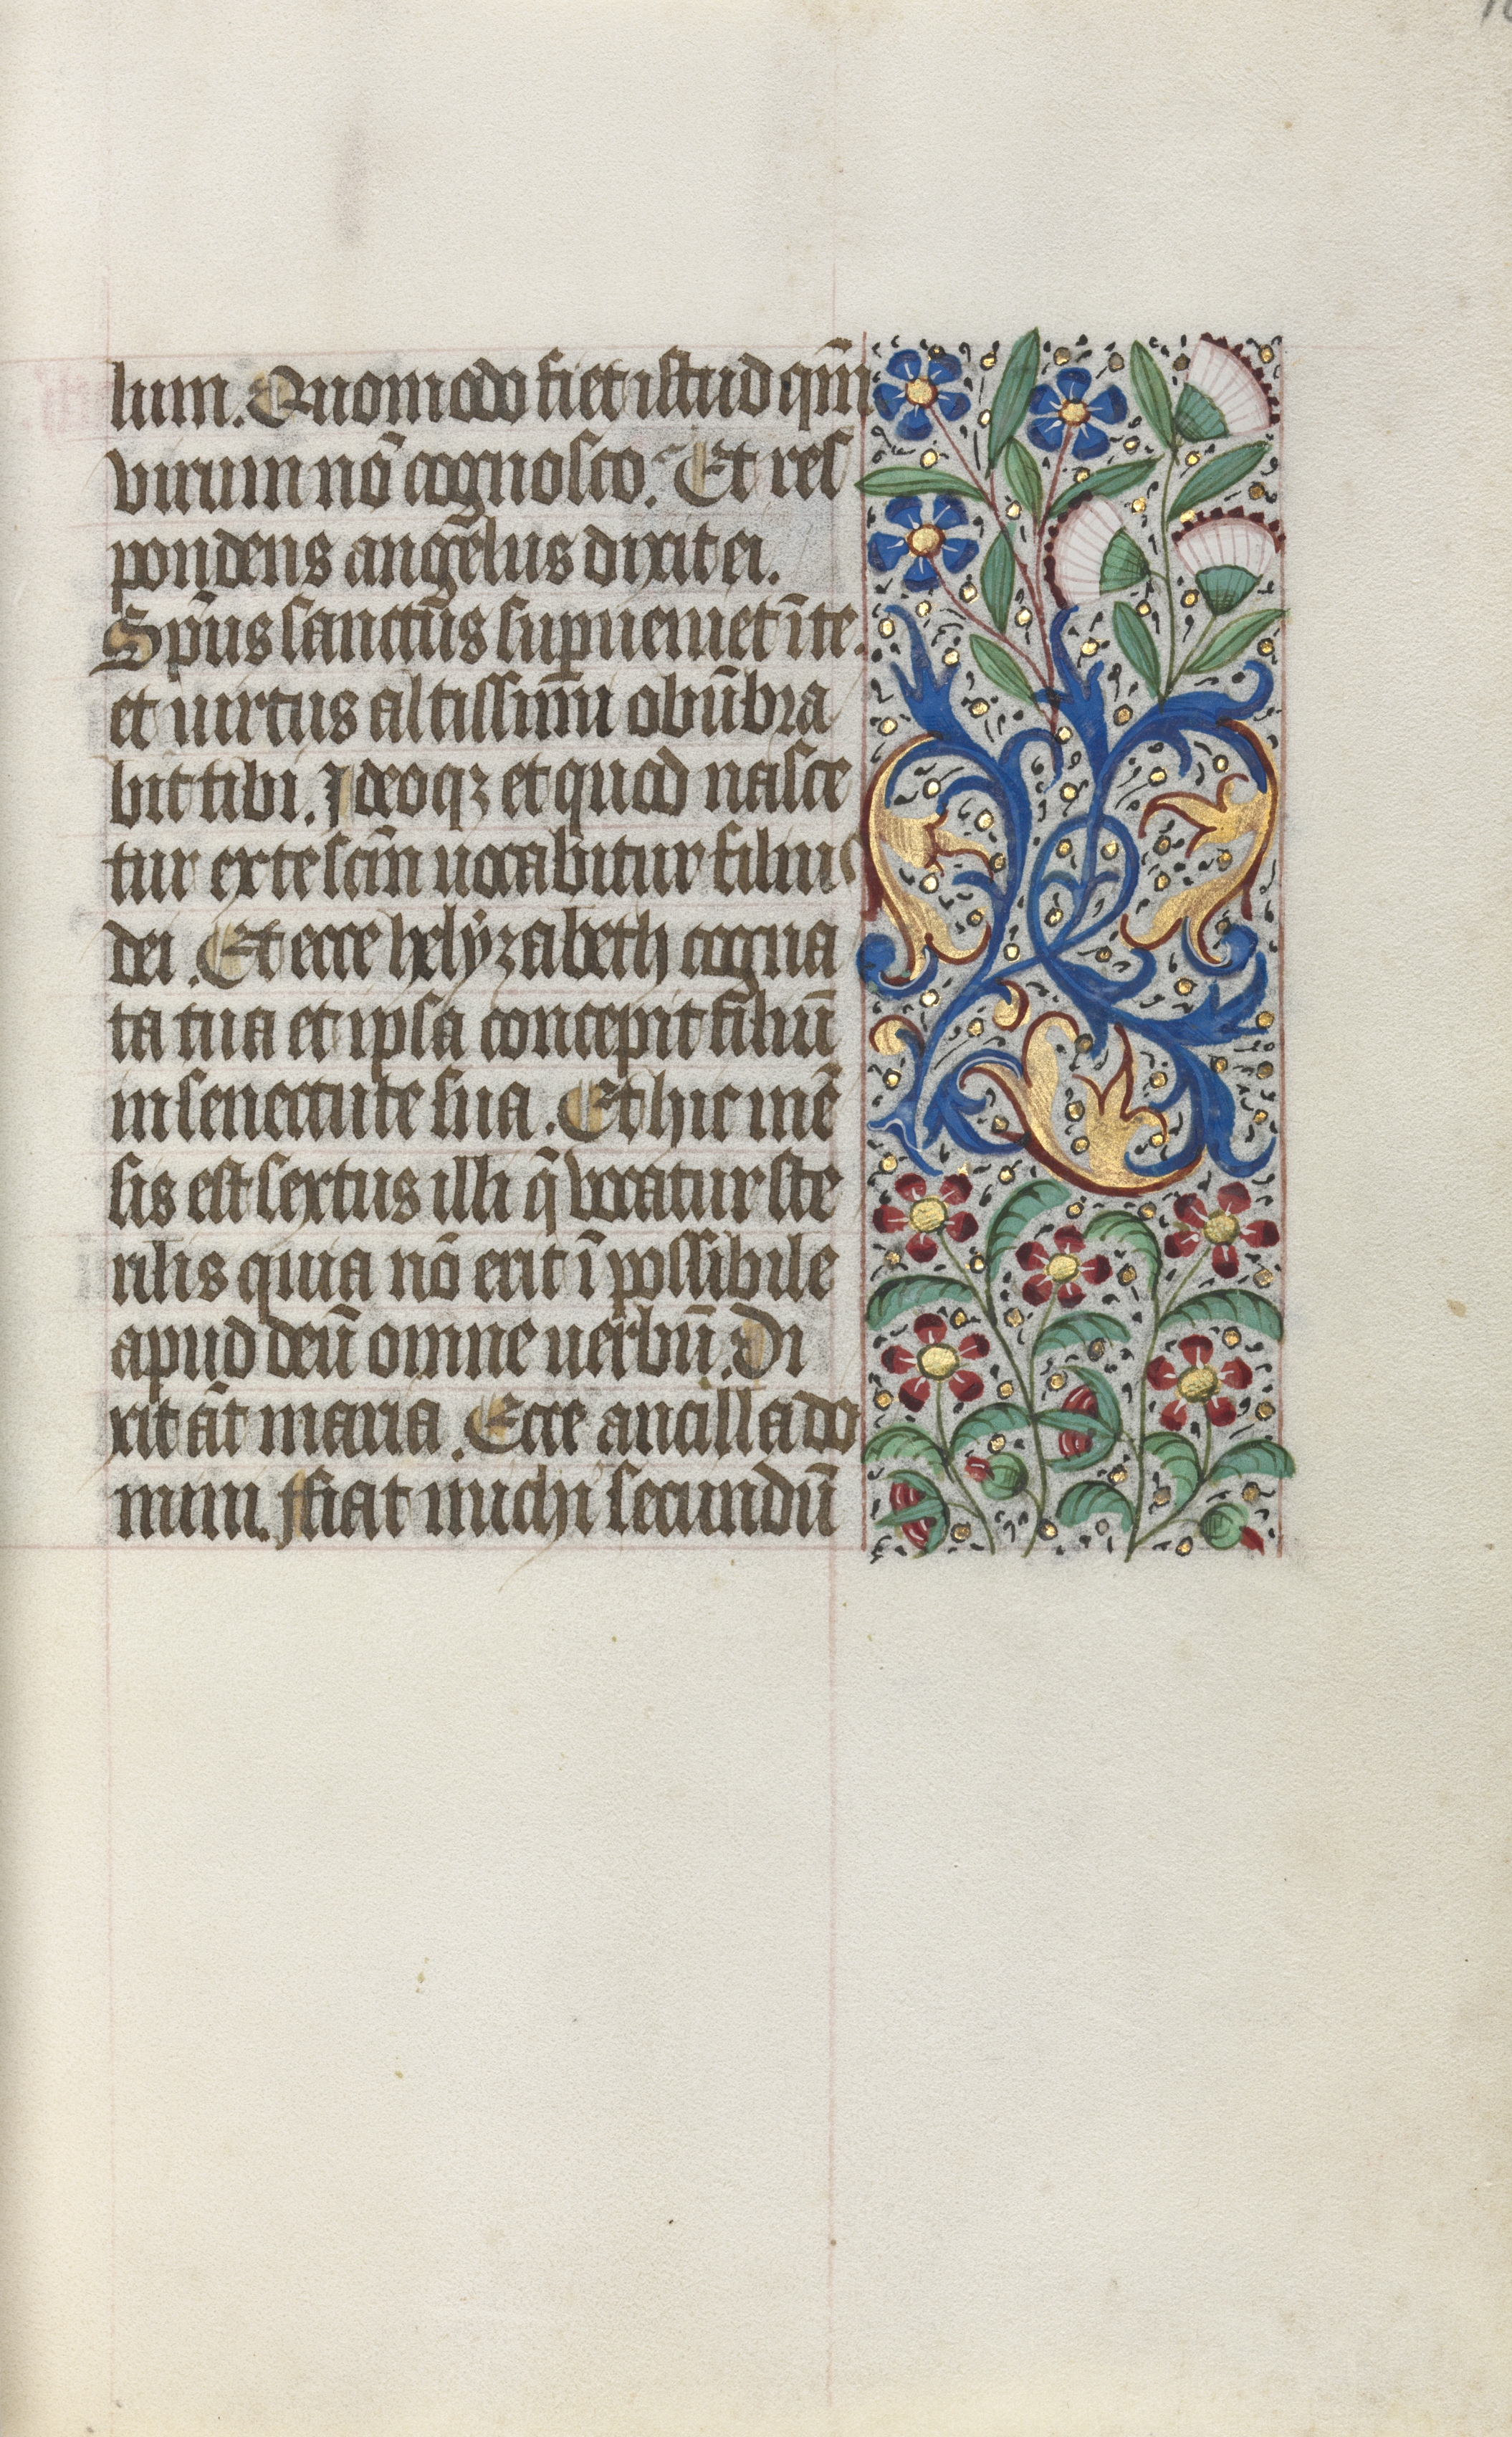 lum. Quomodo fiet istud qm̄
virum nō cognosco. Et res
pondens angelus dixit ei.
Sp̄us sanctus supueniet ī te.
et uirtus altissimi obūbra
bit tibi. Ideoqꝫ et quod nasce
tur ex te scm̄ uocabitur filius
dei. Et ecce helyzabeth cogna
ta tua et ipsa concepit filiū
in senectute sua. Et hic mē
sis est sextus illi q̄ vocatur ste
rilis quia nō erit īpossibile
apud deū omne uerbū. Di
xit āt maria. Ecce ancilla do
mini. ffiat michi secundū